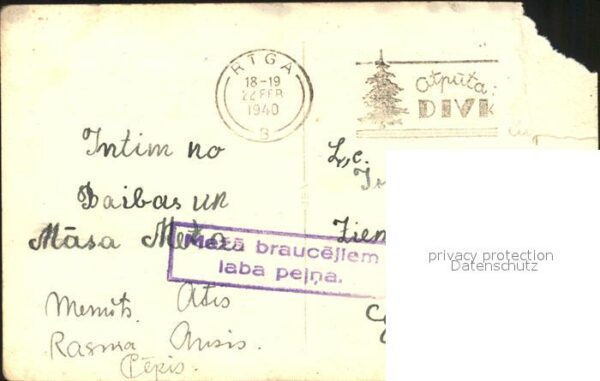 RĪGA
18-19
22 FEB
1940
Atpūta:
DIV
Intim no
Daibas un
Māsa
L.c.
Zien
Mežā braucējiem
laba peļņa.
Memīts. Atis
Rasma Ansis.
Pēpis.
privacy protection
Datenschutz